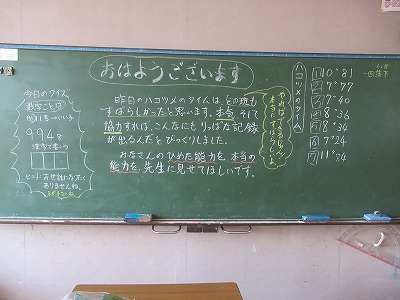 おはようございます
今日のクイズ
教室ことば
994る
漢字で書こう
ヒント:お世話になりたく
ありませんね。
昨日のハコヅメのタイムは、どの班も
すばらしかったと思います。本気、そして
協力すれば、こんなにもりっぱな記録
が出るんだとびっくりしました。
みなさんのひめた能力を、本当の
能力を、先生に見せてほしいです。
やればできるじゃん
ハコヅメのタイム
1 10"81
2 7"77
3 7"40
4 8"36
5 8"34
6 7"24
7 11"84
一回落下